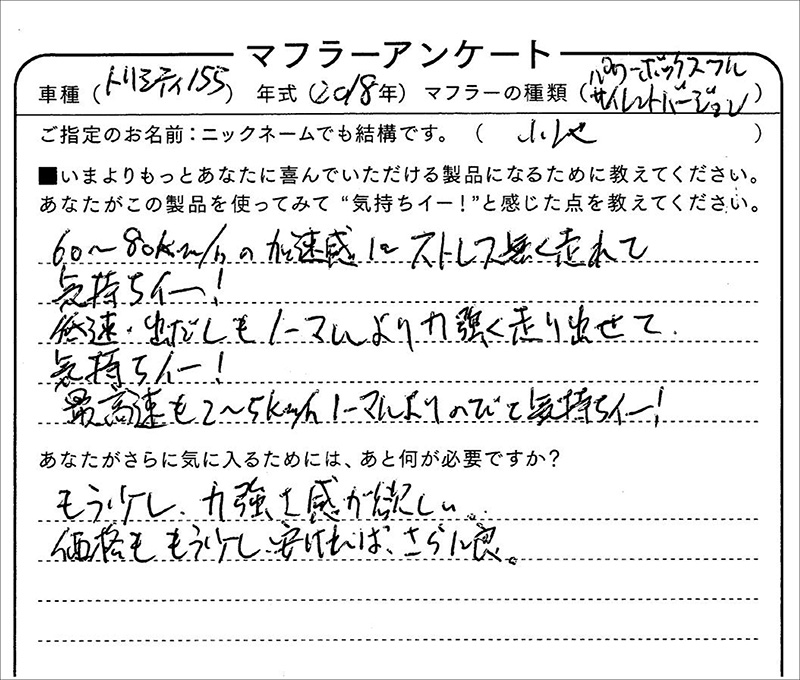 マフラーアンケート
車種（トリシティ155） 年式（2018年） マフラーの種類（パワーボックスフル
サイレントバージョン）
ご指定のお名前：ニックネームでも結構です。（ 小池 ）
■いまよりもっとあなたに喜んでいただける製品になるために教えてください。
あなたがこの製品を使ってみて“気持ちイー！”と感じた点を教えてください。
60～80km/hの加速感にストレス無く走れて
気持ちイー！
低速・出だしもノーマルより力強く走り出せて、
気持ちイー！
最高速も2～5km/hノーマルよりのびて気持ちイー！
あなたがさらに気に入るためには、あと何が必要ですか？
もう少し、力強さ感が欲しい。
価格ももう少し安ければ、さらに良。